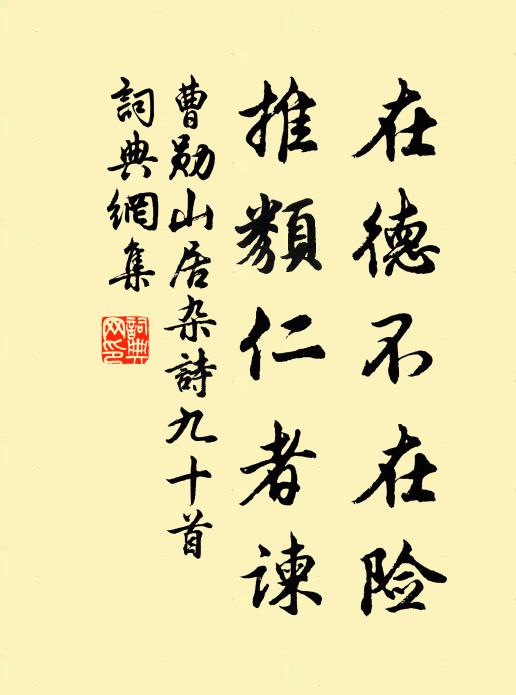 在德不在险
推类仁者谏
曹勋山居杂詩九十首
詞典網集
詞典网印